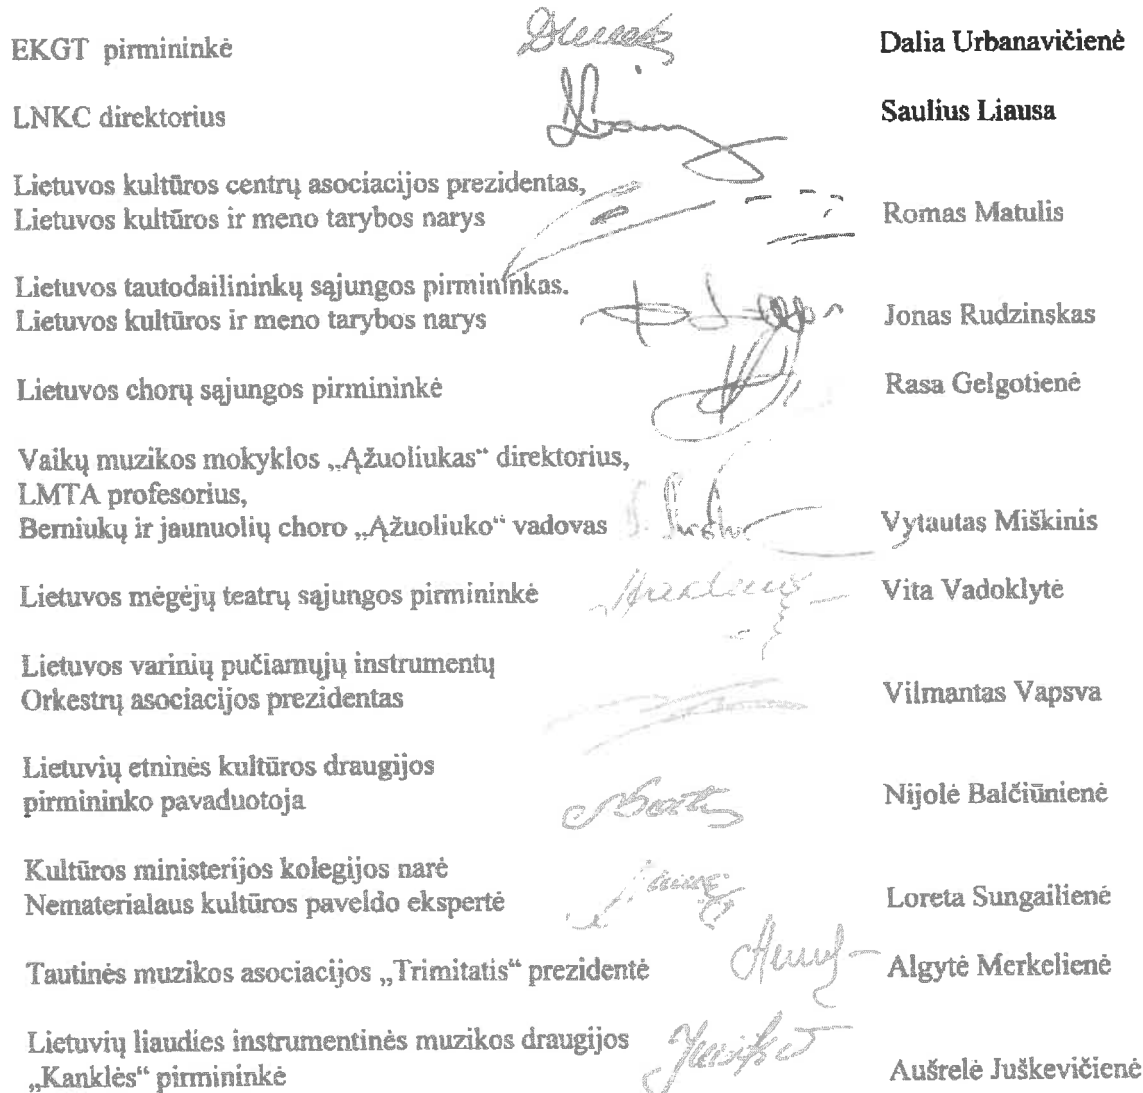 EKGT pirmininkė Dalia Urbanavičienė
LNKC direktorius Saulius Liausa
Lietuvos kultūros centrų asociacijos prezidentas,
Lietuvos kultūros ir meno tarybos narys Romas Matulis
Lietuvos tautodailininkų sąjungos pirmininkas.
Lietuvos kultūros ir meno tarybos narys Jonas Rudzinskas
Lietuvos chorų sąjungos pirmininkė Rasa Gelgotienė
Vaikų muzikos mokyklos „Ąžuoliukas“ direktorius,
LMTA profesorius,
Berniukų ir jaunuolių choro „Ąžuoliuko“ vadovas Vytautas Miškinis
Lietuvos mėgėjų teatrų sąjungos pirmininkė Vita Vadoklytė
Lietuvos varinių pučiamųjų instrumentų
Orkestrų asociacijos prezidentas Vilmantas Vapsva
Lietuvių etninės kultūros draugijos
pirmininko pavaduotoja Nijolė Balčiūnienė
Kultūros ministerijos kolegijos narė
Nematerialaus kultūros paveldo ekspertė Loreta Sungailienė
Tautinės muzikos asociacijos „Trimitatis“ prezidentė Algytė Merkelienė
Lietuvių liaudies instrumentinės muzikos draugijos
„Kanklės“ pirmininkė Aušrelė Juškevičienė